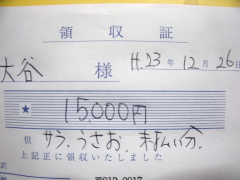 領収証
大谷 様 H.23年12月26日
★ 15,000円
但 サラ、うさお、未払い分.
上記正に領収いたしました